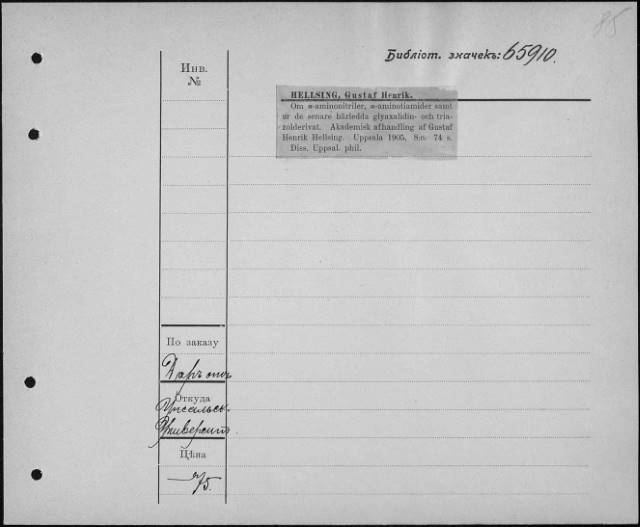 85
Библіот. значекъ: 65910.
Инв.
№
HELLSING, Gustaf Henrik.
Om α-aminonitriler, α-aminotiamider samt
ur de senare härledda glyaxalidin- och tria-
zolderivat. Akademisk afhandling af Gustaf
Henrik Hellsing. Uppsala 1905. 8:o. 74 s.
Diss. Uppsal. phil.
По заказу
Даръ отъ
Откуда
Упсальск.
Университ.
Цѣна